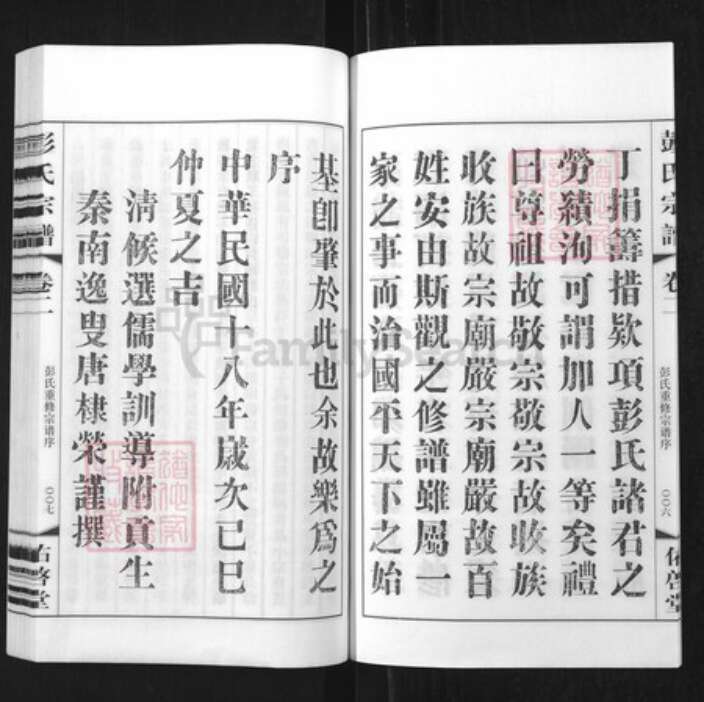 彭氏宗譜
卷二
彭氏重修宗谱序
〇〇六
佑啓堂
丁捐籌措欵項彭氏諸君之
勞績洵可謂加人一等矣禮
曰尊祖故敬宗敬宗故收族
收族故宗廟嚴宗廟嚴故百
姓安由斯觀之修譜雖屬一
家之事而治國平天下之始
基卽肇於此也余故樂爲之
序
中華民國十八年歲次己巳
仲夏之吉
清候選儒學訓導附貢生
秦南逸叟唐棣榮謹撰
彭氏宗譜
卷二
彭氏重修宗谱序
〇〇七
佑啓堂
FamilySearch